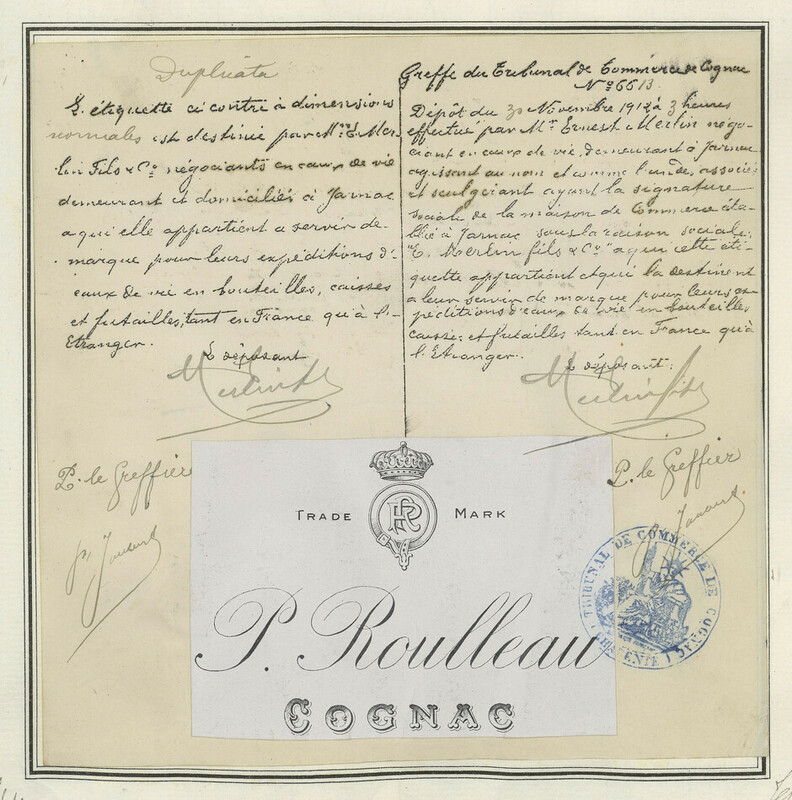 Duplicata
L'étiquette ci contre à dimensions
normales est destinée par Mrs E. Mer-
lin Fils & Co négociants en eaux de vie
demeurant et domiciliés à Jarnac
a qui elle appartient a servir de
marque pour leurs expéditions d'
eaux de vie en bouteilles, caisses
et futailles, tant en France qu'à l'-
Etranger.
Le déposant
Merlin fils
P. le Greffier
Greffe du Tribunal de Commerce de Cognac
No 6613
Dépôt du 30 Novembre 1912 à 3 heures
effectué par Mr. Ernest Merlin négo-
ciant en eaux de vie, demeurant à Jarnac
agissant au nom et comme l'un des associés
et seul gérant ayant la signature
sociale de la maison de Commerce éta-
blie à Jarnac sous la raison sociale:
"E. Merlin fils & Co" a qui cette éti-
quette appartient et qui la destinent
a leur servir de marque pour leurs ex-
péditions d'eaux de vie en bouteilles,
caisses et futailles tant en France qu'à
l'Etranger.
Le déposant.
Merlin fils
P. le Greffier
TRADE MARK
P. Roulleau
COGNAC
TRIBUNAL DE COMMERCE DE COGNAC
(CHARENTE)